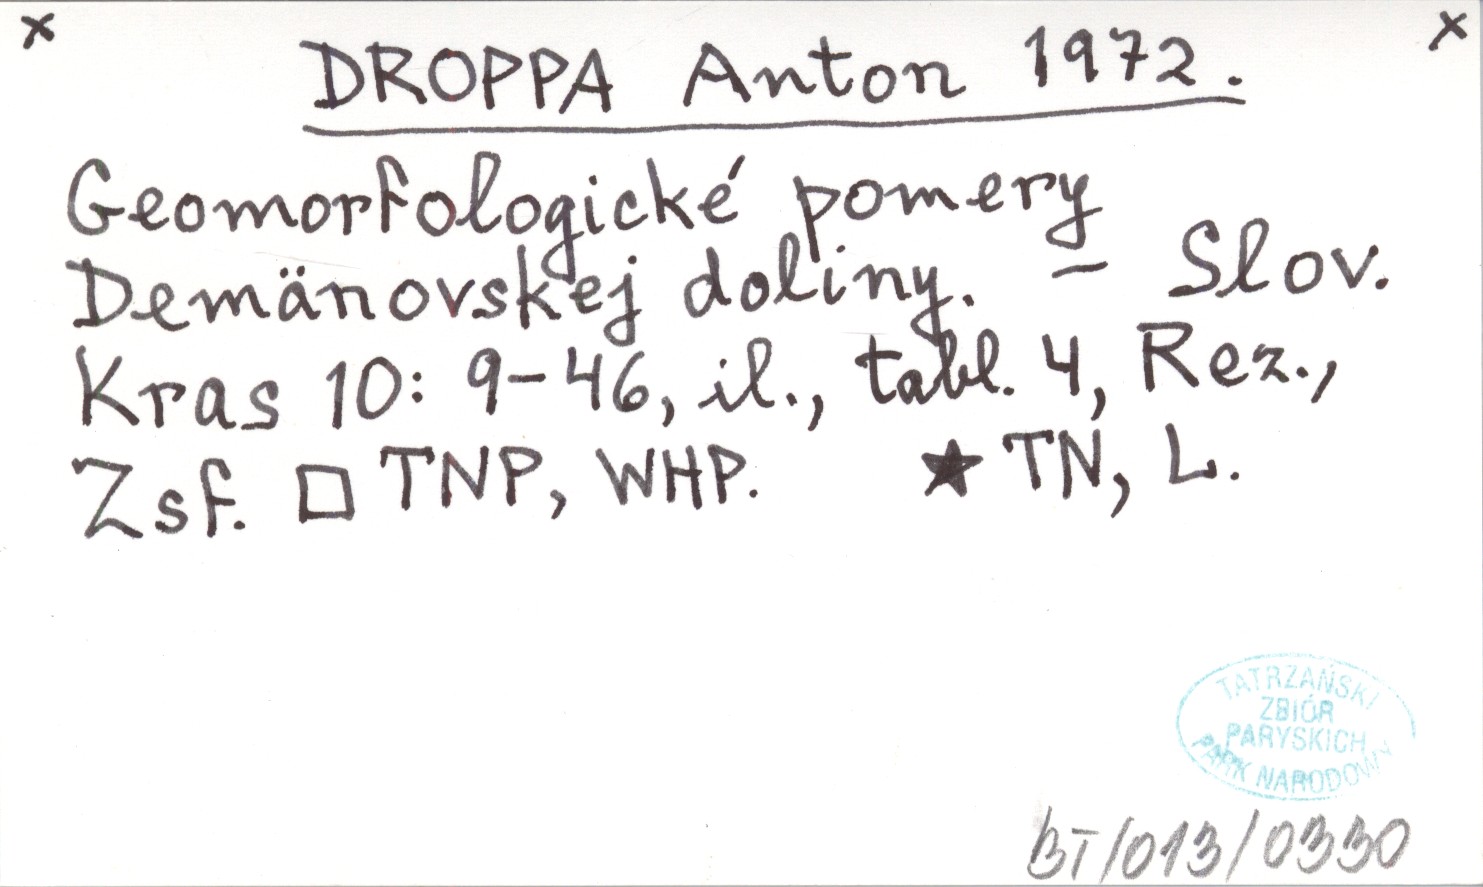 x x
DROPPA Anton 1972.
Geomorfologické pomery
Demänovskej doliny. – Slov.
Kras 10: 9-46, il., tabl. 4, Rez.,
Zsf. □ TNP, WHP. ★ TN, L.
TATRZAŃSKI
ZBIÓR
PARYSKICH
PARK NARODOWY
BT/013/0330